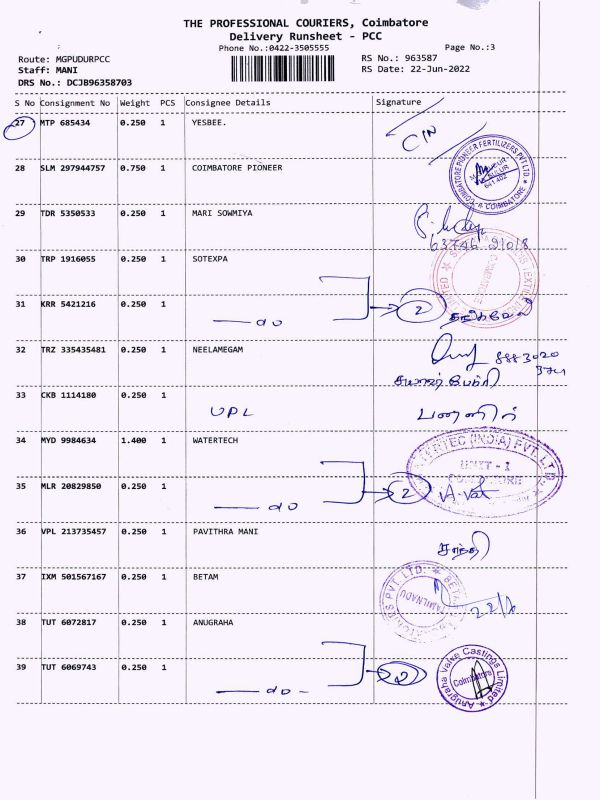 THE PROFESSIONAL COURIERS, Coimbatore
Delivery Runsheet - PCC
Phone No.:0422-3505555
Page No.:3
Route: MGPUDURPCC
RS No.: 963587
Staff: MANI
RS Date: 22-Jun-2022
DRS No.: DCJB96358703
S No Consignment No Weight PCS Consignee Details Signature
27 MTP 685434 0.250 1 YESBEE.
28 SLM 297944757 0.750 1 COIMBATORE PIONEER
COIMBATORE PIONEER FERTILIZERS PVT LTD. COIMBATORE
29 TDR 5350533 0.250 1 MARI SOWMIYA
63746 91018
30 TRP 1916055 0.250 1 SOTEXPA
31 KRR 5421216 0.250 1
do 2
32 TRZ 335435481 0.250 1 NEELAMEGAM
8883020
33 CKB 1114180 0.250 1
UPL
34 MYD 9984634 1.400 1 WATERTECH
(INDIA) PVT. LTD.
UNIT - I
35 MLR 20829850 0.250 1
do 2
36 VPL 213735457 0.250 1 PAVITHRA MANI
37 IXM 501567167 0.250 1 BETAM
PVT. LTD.
TAMILNADU
38 TUT 6072817 0.250 1 ANUGRAHA
39 TUT 6069743 0.250 1
do 2
Anugraha Valve Castings Limited
Coimbatore